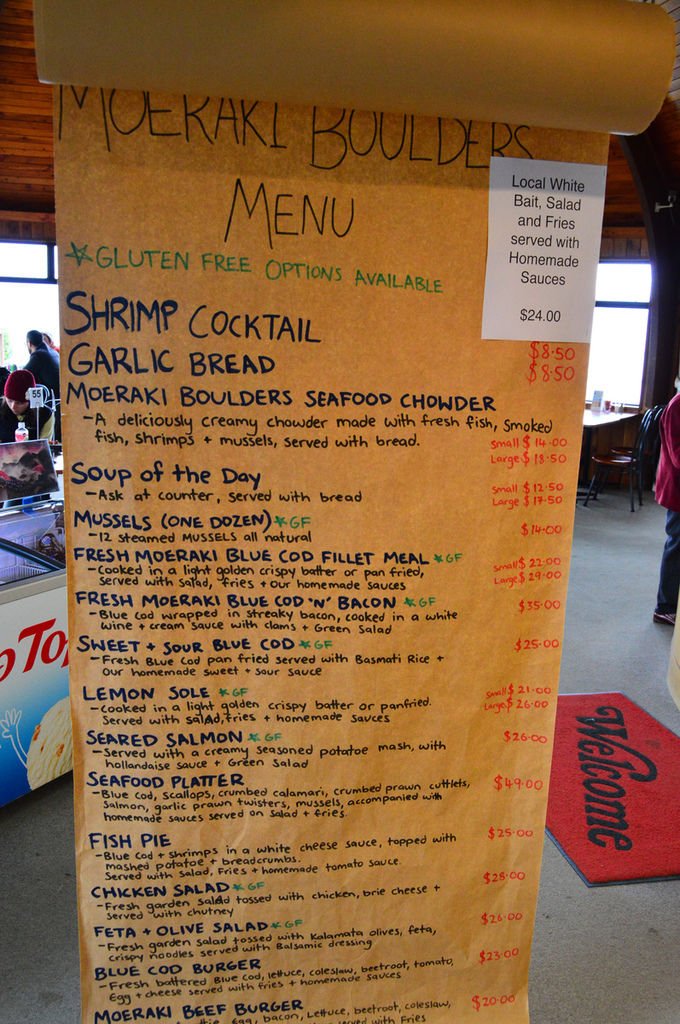 MOERAKI BOULDERS
MENU
Local White
Bait, Salad
and Fries
served with
Homemade
Sauces
$24.00
*GLUTEN FREE OPTIONS AVAILABLE
SHRIMP COCKTAIL $8.50
GARLIC BREAD $8.50
MOERAKI BOULDERS SEAFOOD CHOWDER
-A deliciously creamy chowder made with fresh fish, smoked
fish, shrimps + mussels, served with bread. small $14.00
Large $18.50
SOUP OF THE DAY small $12.50
-Ask at counter, served with bread Large $17.50
MUSSELS (ONE DOZEN) *GF $14.00
-12 steamed MUSSELS all natural
FRESH MOERAKI BLUE COD FILLET MEAL *GF small $22.00
-Cooked in a light golden crispy batter or pan fried, Large $29.00
served with salad, fries + our homemade sauces
FRESH MOERAKI BLUE COD 'N' BACON *GF $35.00
-Blue cod wrapped in streaky bacon, cooked in a white
wine + cream sauce with clams + Green Salad
SWEET + SOUR BLUE COD *GF $25.00
-Fresh Blue Cod pan fried served with Basmati Rice +
our homemade sweet + sour sauce
LEMON SOLE *GF small $21.00
-Cooked in a light golden crispy batter or panfried. Large $26.00
Served with salad, fries + homemade sauces
SEARED SALMON *GF $26.00
-Served with a creamy seasoned potatoe mash, with
hollandaise sauce + Green Salad
SEAFOOD PLATTER $49.00
-Blue cod, scallops, crumbed calamari, crumbed prawn cuttlets,
Salmon, garlic prawn twisters, mussels, accompanied with
homemade sauces served on salad + fries.
FISH PIE $25.00
-Blue Cod + shrimps in a white cheese sauce, topped with
mashed potatoe + breadcrumbs.
Served with salad, Fries + homemade tomato sauce.
CHICKEN SALAD *GF $28.00
-Fresh garden salad tossed with chicken, brie cheese +
served with chutney
FETA + OLIVE SALAD *GF $26.00
-Fresh garden salad tossed with Kalamata olives, feta,
crispy noodles served with Balsamic dressing
BLUE COD BURGER $23.00
-Fresh battered Blue Cod, lettuce, coleslaw, beetroot, tomato,
Egg + cheese served with fries + homemade sauces
MOERAKI BEEF BURGER $20.00
egg, bacon, Lettuce, beetroot, coleslaw,
served with Fries
55
Top
Welcome